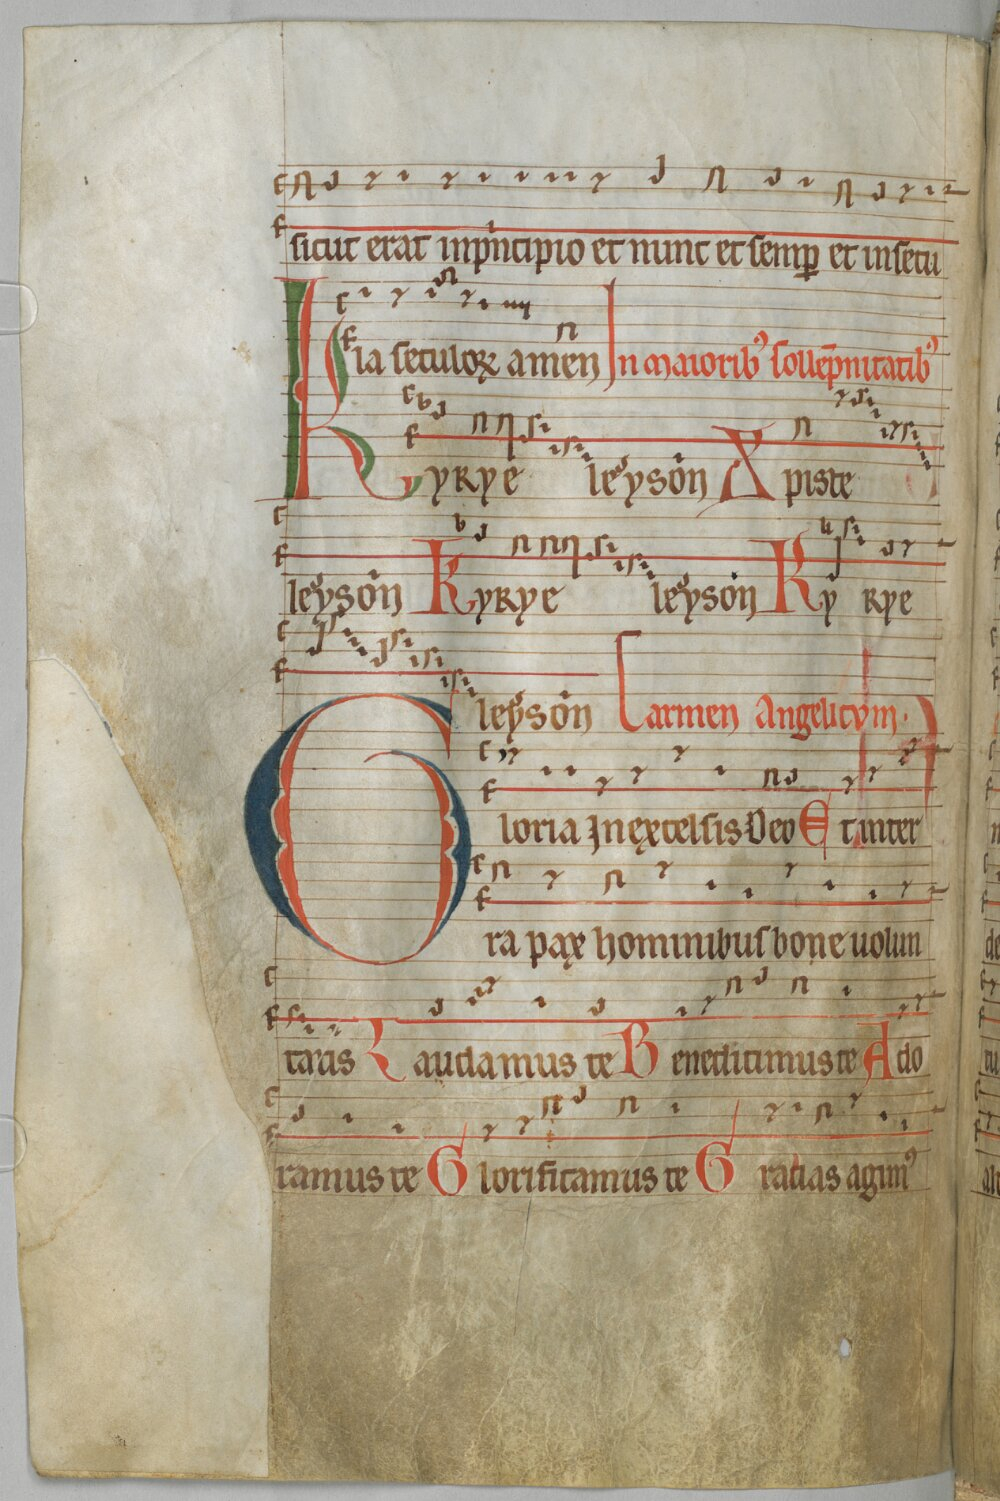 sicut erat inp̄ncipio et nunc et semꝑ et insecu
la seculoꝝ amen In maioribꝰ sollēpnitatibꝰ
Kyrye leyson Xpiste
leyson Kyrye leyson Ky rye
leyson Carmen Angelicvm.
Gloria Jnexcelsis Deo Et inter
ra pax hominibus bone uolun
tatis Laudamus te Benedicimus te Ado
ramus te Glorificamus te Gratias agimꝰ